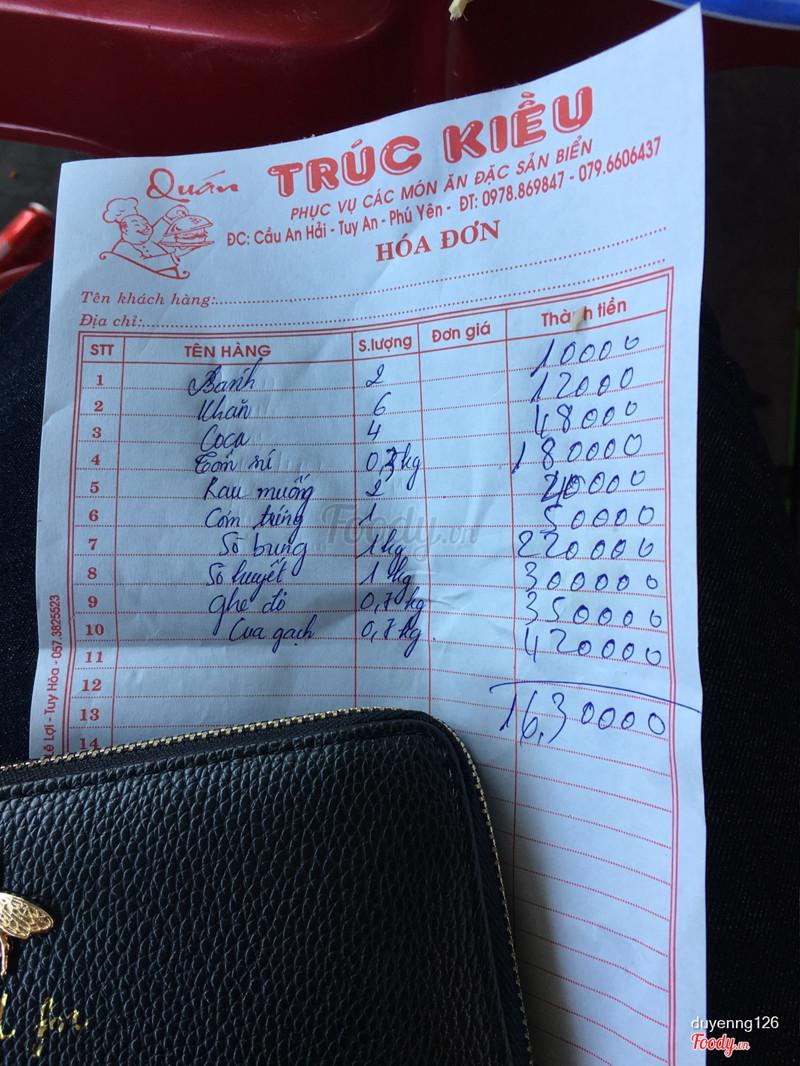 Quán TRÚC KIỀU
PHỤC VỤ CÁC MÓN ĂN ĐẶC SẢN BIỂN
ĐC: Cầu An Hải - Tuy An - Phú Yên - ĐT: 0978.869847 - 079.6606437
HÓA ĐƠN
Tên khách hàng:
Địa chỉ:
STT TÊN HÀNG S.lượng Đơn giá Thành tiền
1 Banh 2 10000
2 Khăn 6 12000
3 Coca 4 48000
4 Tôm sú 0,3kg 180000
5 Rau muống 2 40000
6 Cơm trắng 1 50000
7 Sò bung 1kg 220000
8 Sò huyết 1kg 300000
9 Ghẹ đỏ 0,7kg 350000
10 Cua gạch 0,7kg 420000
11
12
13 16,30000
14
Lê Lợi - Tuy Hòa - 057.3825523
Foody.vn
for
duyenng126
Foody.vn